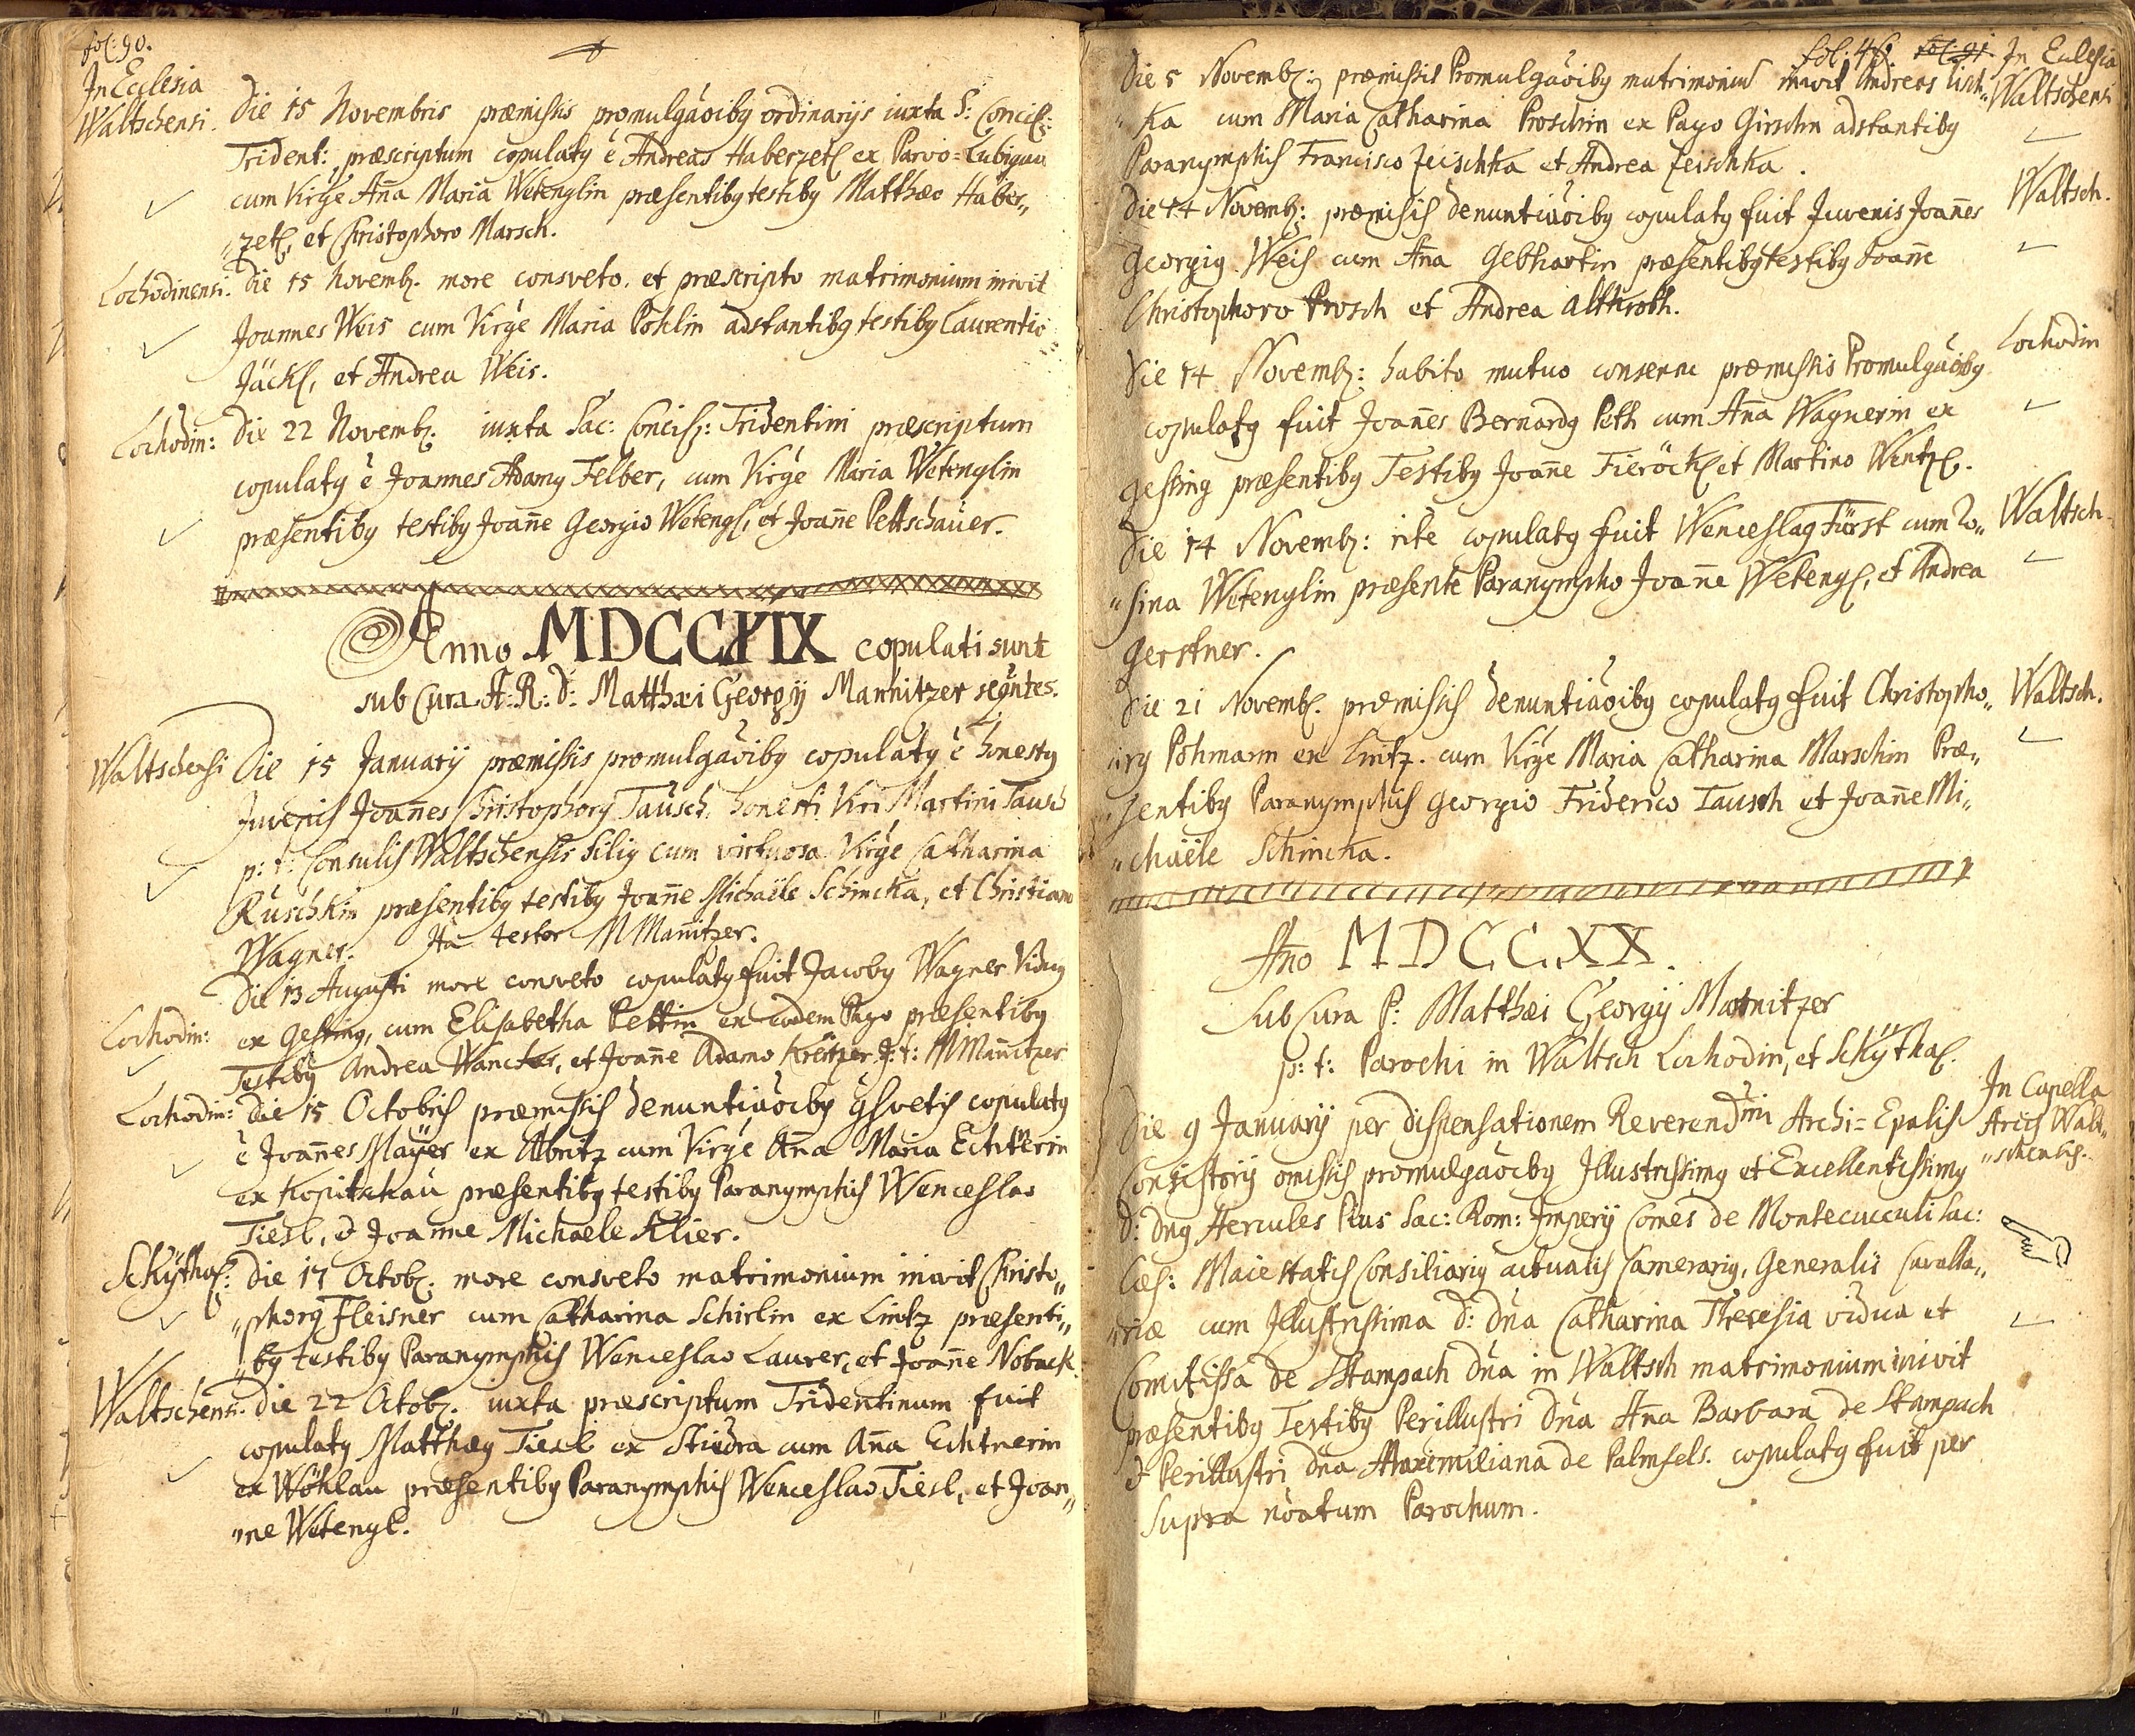 fol: 90.
In Ecclesia
Waltschensi.
Die 15 Novembris præmissis promulgaõibg ordinarijs iuxta S: Concil:
Trident: præscriptum copulatg ẽ Andreas Haberzetl ex Parvo=Lubigau
cum Virg̃e Aña Maria Wetenglin præsentibg testibg Matthæo Haber„
„zetl, et Christophoro Marsch.
Lochodinensi. Die 15 Novemb. more consveto, et præscripto matrimonium inivit
Joannes Weis cum Virg̃e Maria Pöhlin adstantibg testibg Laurentio
Jäckl, et Andrea Weis.
Lochodin: Die 22 Novemb. iuxta Sac: Concil: Tridentini præscriptum
copulatg ẽ Joannes Adamg Felber, cum Virg̃e Maria Wetenglin
præsentibg testibg Joañe Georgio Wetengl, et Joañe Pettschauer.
Anno MDCCXIX copulati sunt
sub Cura A: R: D: Matthæi Georgij Mannitzer seqũtes.
Waltschensi Die 15 Januarij præmissis promulgaõibg copulatg ẽ honestg
Juvenis Joañes Christophorg Tausch, honesti Viri Martini Tausch
p: t: Consulis Waltschensis filig cum virtuosa Virg̃e Catharina
Ruschkin præsentibg testibg Joañe Michaële Schimcka, et Christiano
Wagner. Ita testor M Mañitzer.
Die 13 Augusti more consveto copulatg fuit Jacobg Wagner Vidug
Lochodin: ex Gessing, cum Elisabetha Pettin ex eodem Pago præsentibg
Testibg Andrea Wancker, et Joañe Adamo Kreützer J: t: M Mañitzer
Lochodin: Die 15 Octobris præmissis denuntiaõibg ꝯsvetis copulatg
ẽ Joañes Mayer ex Albritz cum Virg̃e Aña Maria Echterin
ex Kopitschau præsentibg testibg Paranymphis Wenceslao
Tiesl, & Joanne Michaele Klier.
Sckÿthal: Die 17 Octob. more consveto matrimonium inivit Christo„
„phorg Fleisner cum Catharina Schirlin ex Lintz præsenti„
„bg testibg Paranymphis Wenceslao Laurer, et Joañe Noback
Waltschensi. Die 22 Octob. iuxta præscriptum Tridentinum fuit
copulatg Matthæg Tiesl ex Stiedra cum Aña Echtnerin
ex Wöhlau præsentibg Paranymphis Wenceslao Tiesl, et Joan„
„ne Wetengl.
fol: 46. fol: 91. In Ecclesia
Die 5 Novemb: præmissis Promulgaõibg matrimoniũ inivit Andreas Lisch„ Waltschensi
„ka cum Maria Catharina Proschin ex Pago Girschin adstantibg
Paranymphis Francisco Zeischka et Andrea Zeischka.
Die 14 Novemb: præmissis denuntiaõibg copulatg fuit Juvenis Joañes Waltsch.
Georgig Weis cum Aña Gebhartin præsentibg testibg Joañe
Christophoro Prosch et Andrea Althroth.
Lochodin
Die 14 Novemb: habito mutuo consensu præmissis Promulgaõibg
copulatg fuit Joañes Bernardg Peth cum Aña Wagnerin ex
Gessing præsentibg Testibg Joañe Tieröckl et Martino Wentzl.
Die 14 Novemb: rite copulatg fuit Wenceslag Fürst cum Ro„ Waltsch.
„sina Wetenglin præsente Paranympho Joañe Wetengl, et Andrea
Gerstner.
Die 21 Novemb. præmissis denuntiaõibg copulatg fuit Christopho„ Waltsch.
„rg Pohmann ex Lintz. cum Virg̃e Maria Catharina Marschin Præ„
„sentibg Paranymphis Georgio Friderico Tausch et Joañe Mi„
„chaële Schimcka.
Año MDCCXX.
Sub Cura P: Matthæi Georgij Mannitzer
p: t: Parochi in Waltsch Lochodin, et Sckÿthal.
In Capella
Arcis Walt„
„schensis.
Die 9 Januarij per dispensationem Reverendmi Archi=Epalis
Consistorij omissis promulgaõibg Illustrissimg et Excellentissimg
D: Dng Hercules Pius Sac: Rom: Imperij Comes de Montecucculi Sac:
Cæs: Maiestatis Consiliarig actualis Camerarig, Generalis Cavalla„
„riæ cum Illustrissima D: Dña Catharina Theresia vidua et
Comitissa de Stampach Dña in Waltsch matrimonium inivit
præsentibg Testibg Perillustri Dña Aña Barbara de Stampach
& Perillustri Dña Maximiliana de Palmfels. copulatg fuit per
Supra nõatum Parochum.